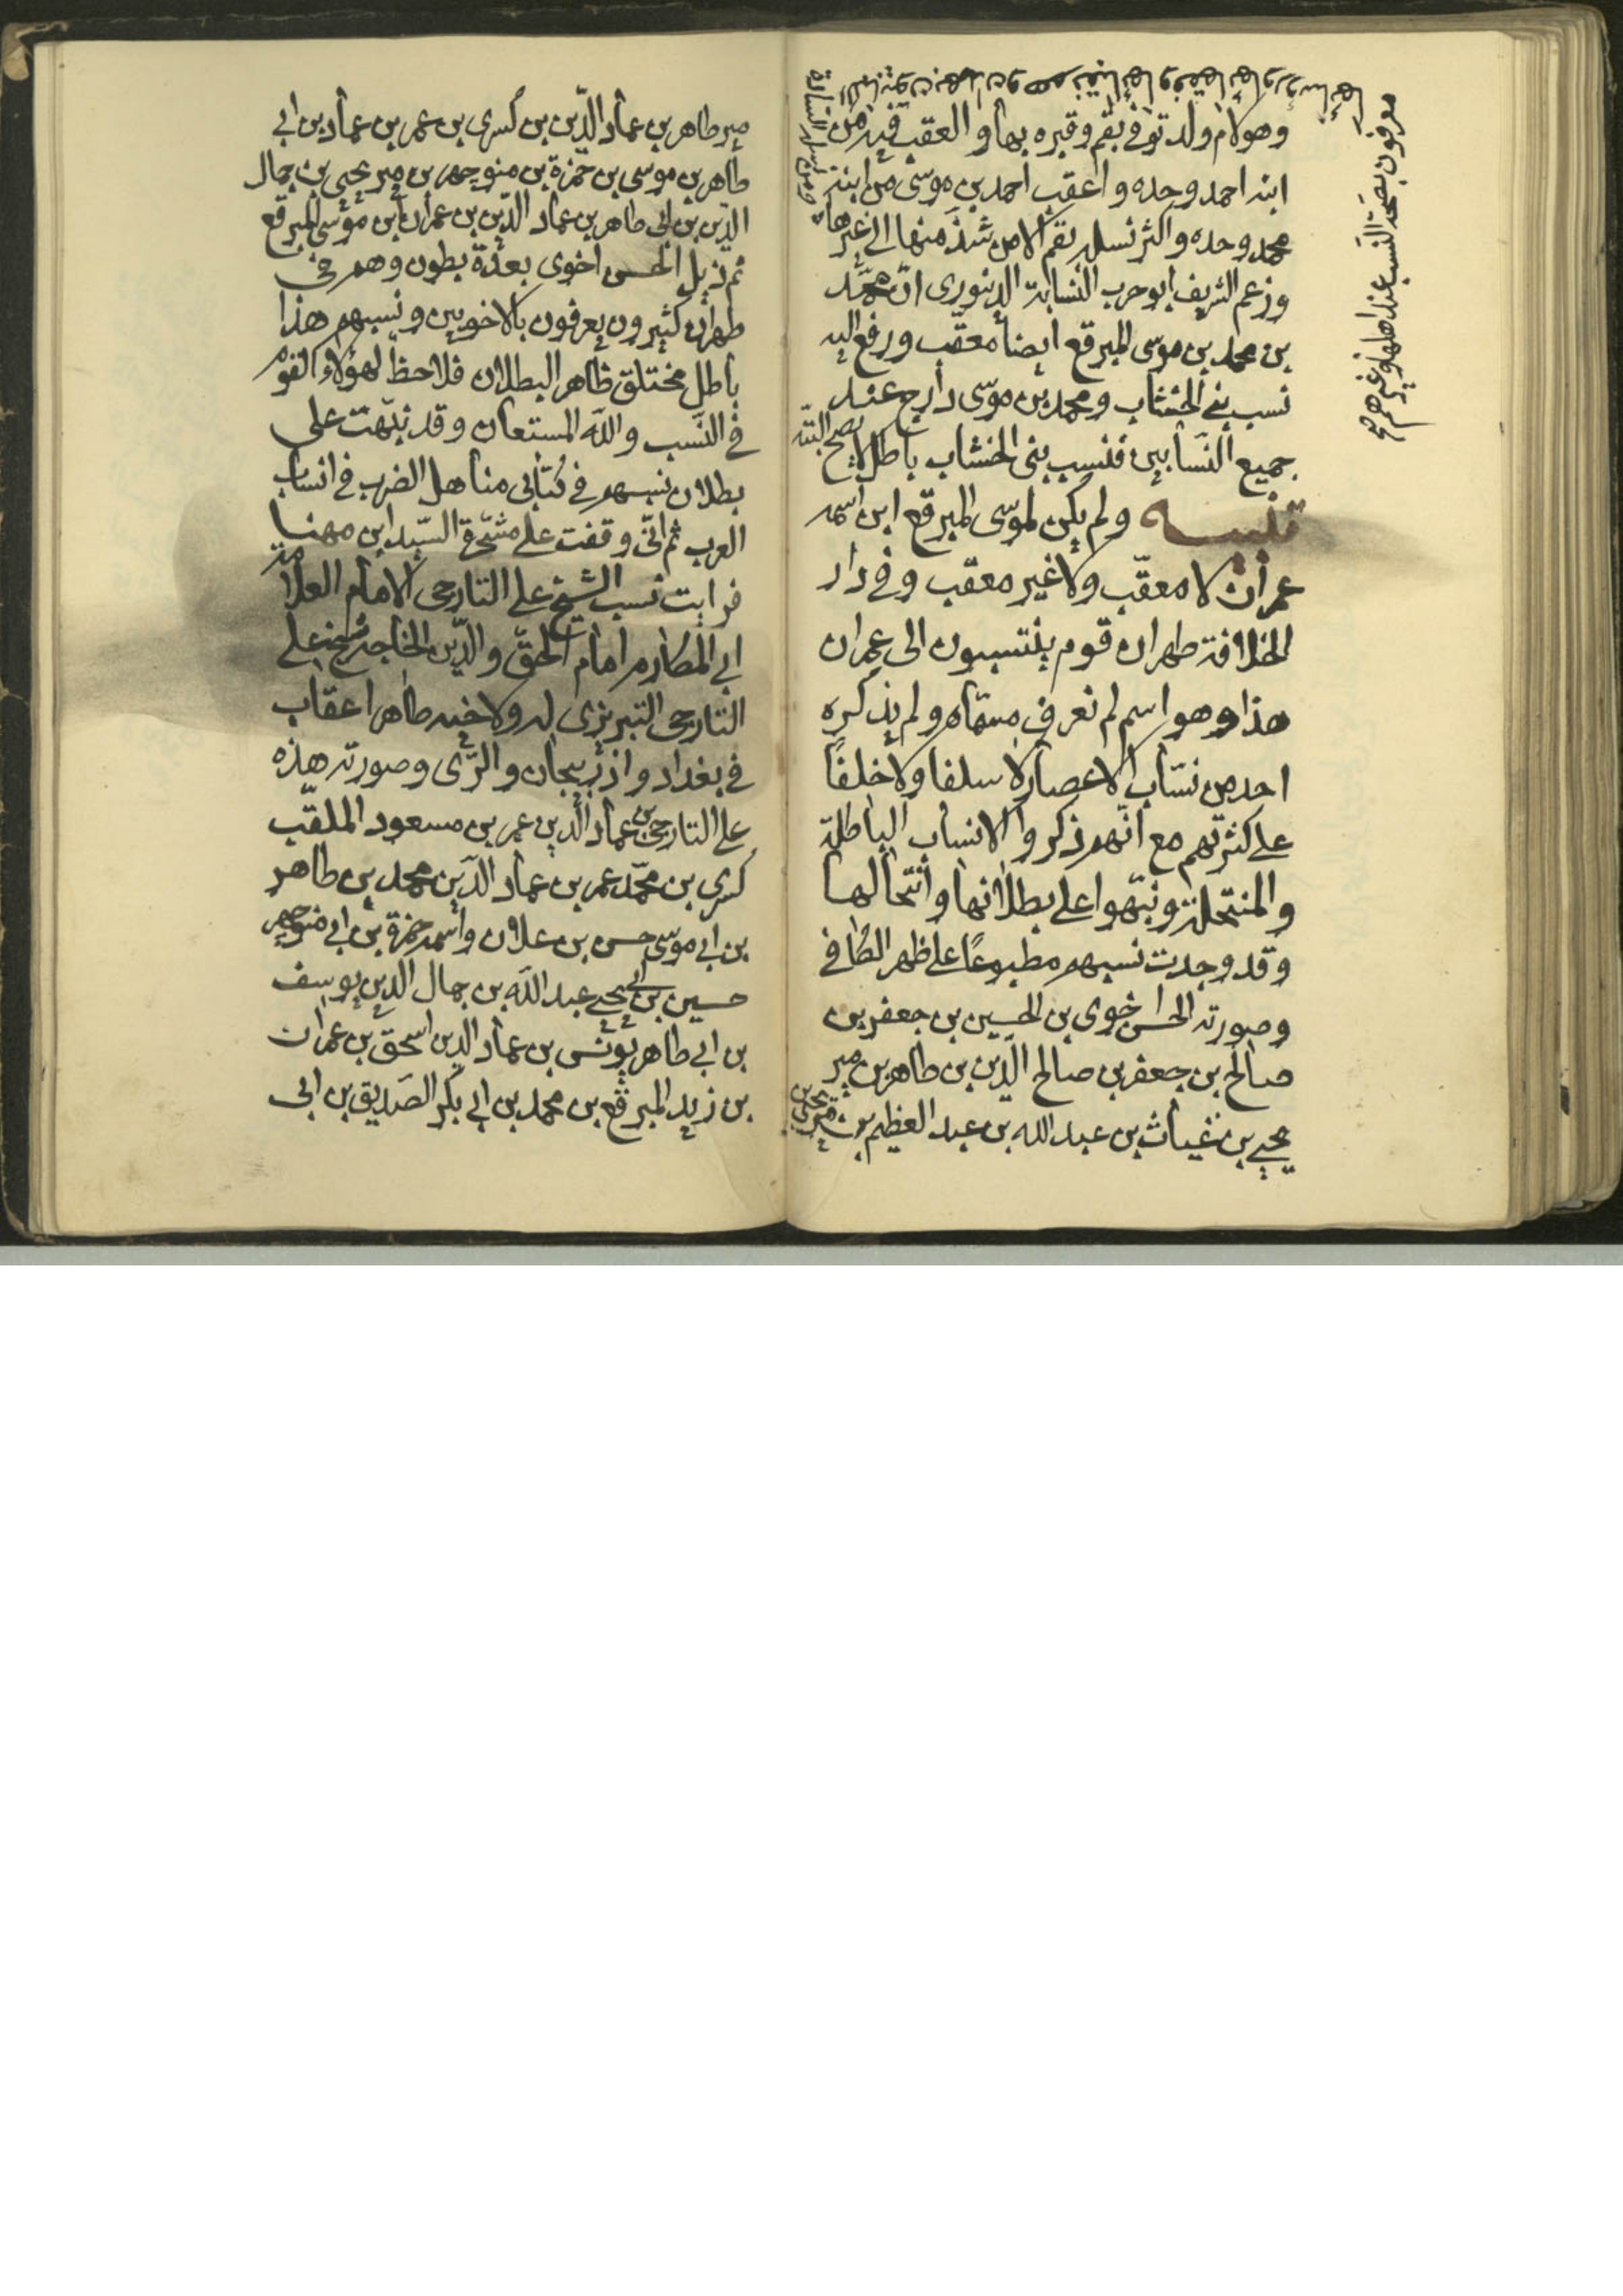 وهو لام ولد توفي بقم وقبره بها والعقب فيه من
ابنه احمد وحده واعقب احمد بن موسى من ابنه
محمد وحده واكثر نسله بقم الا من شذ منها الى غيرها
وزعم الشريف ابو حرب النسابة الدينوري ان محمد
بن محمد بن موسى المبرقع ايضا معقب ورفع اليه
نسب بني الخشاب ومحمد بن موسى دارج عند
جميع النسابين فنسب بنى الخشاب باطل لا يصح البتة
تنبيه ولم يكن لموسى المبرقع ابن اسمه
عمران لا معقب ولا غير معقب وفي دار
الخلافة طهران قوم ينتسبون الى عمران
هذا وهو اسم لم نعرف مسماه ولم يذكره
احد من نساب الاعصار لا سلفا ولا خلفاً
على كثرتهم مع انهم ذكروا الانساب الباطلة
والمنتحلة ونبهوا على بطلانها وانتحالها
وقد وجدت نسبهم مطبوعاً على ظهر الكافي
وصورته الحسن اخوى بن الحسين بن جعفر بن
صالح بن جعفر بن صالح الدين بن طاهر بن مير
يحيى بن غياث بن عبد الله بن عبد العظيم بن
معرفون بصحة النسب عند اهلها وغيرهم صح
مير طاهر بن عماد الدّين بن كسرى بن عمر بن عماد بن ابي
طاهر بن موسى بن حمزة بن منوچهر بن مير يحيى بن جمال
الدين بن ابى طاهر بن عماد الدّين بن عمران بن موسى المبرقع
ثم ذيل الحسن اخوى بعدة بطون وهم في
طهران كثيرون يعرفون بالاخويين ونسبهم هذا
باطل مختلق ظاهر البطلان فلا حظّ لهؤلاء القوم
في النَسب والله المستعان وقد نبّهت على
بطلان نسبهم في كتابى مناهل الضرب في انساب
العرب ثم انّى وقفت على مشجرة السّيد ابن مهنا
فرايت نسب الشيخ على التارجى الامام العلامة
ابي المكارم امام الحقّ والدّين الخاجه شيخ على
التارجى التبريزى له ولاخيه طاهر اعقاب
في بغداد واذربيجان والرّى وصورته هذه
على التارجى بن عماد الدين عمر بن مسعود الملقّب
كسرى بن محمّد عمر بن عماد الدّين محمد بن طاهر
بن ابي موسى حسن بن علان واسمه حمزة بن ابي منوچهر
حسين بن ابي يحيى عبد الله بن جمال الدين يوسف
بن ابي طاهر يونس بن عماد الدين اسحق بن عمران
بن زيد المبرقع بن محمد بن ابي بكر الصديق بن ابى